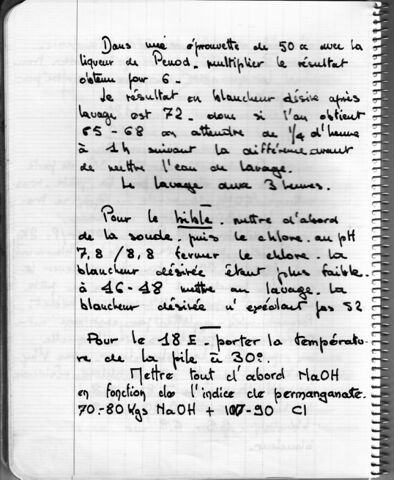 Dans une éprouvette de 50 cc avec la
liqueur de Penod. multiplier le résultat
obtenu par 6.
Le résultat en blancheur désiré après
lavage est 72. donc si l'on obtient
65-68 on attendra de 1/4 d'heure
à 1h suivant la différence avant
de mettre l'eau de lavage.
Le lavage dure 3 heures.
Pour le bible. mettre d'abord
de la soude. puis le chlore. au pH
7,8/8,8 fermer le chlore. la
blancheur désirée étant plus faible.
à 46-48 mettre au lavage. la
blancheur désirée n'excédant pas 52
Pour le 18 E. porter la températu-
re de la pile à 30°.
Mettre tout d'abord NaOH
en fonction de l'indice de permanganate.
70-80 Kgs NaOH + -90 Cl